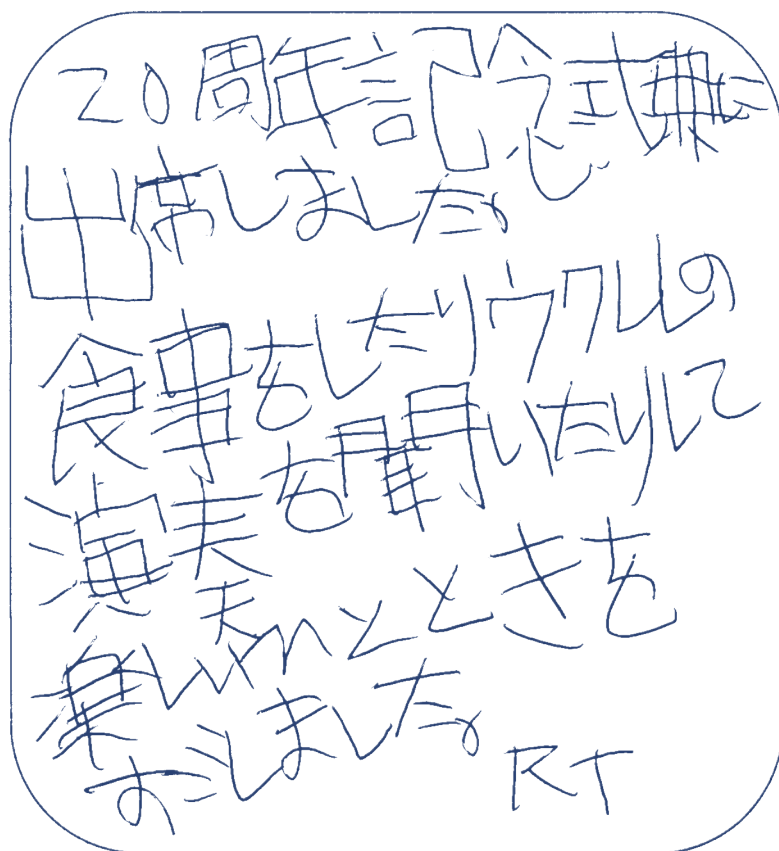 20周年記念式典に
出席しました。
食事をしたりウクレレの
演奏を聞いたりして
楽しいひとときを
すごしました。 RT